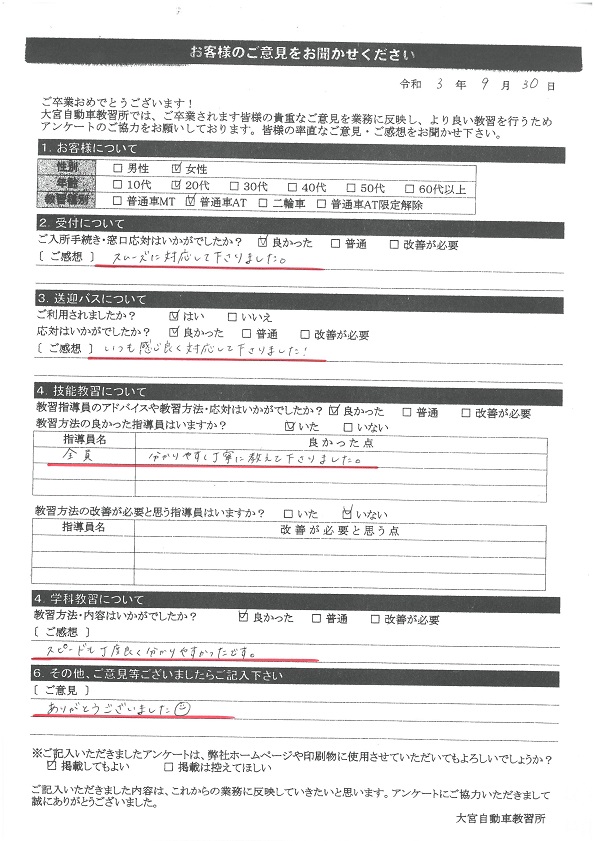 お客様のご意見をお聞かせください
令和 3 年 9 月 30 日
ご卒業おめでとうございます!
大宮自動車教習所では、ご卒業されます皆様の貴重なご意見を業務に反映し、より良い教習を行うため
アンケートのご協力をお願いしております。皆様の率直なご意見・ご感想をお聞かせ下さい。
1. お客様について
性別 □ 男性 ☑ 女性
年齢 □ 10代 ☑ 20代 □ 30代 □ 40代 □ 50代 □ 60代以上
教習種別 □ 普通車MT ☑ 普通車AT □ 二輪車 □ 普通車AT限定解除
2. 受付について
ご入所手続き・窓口応対はいかがでしたか? ☑ 良かった □ 普通 □ 改善が必要
[ ご感想 ] スムーズに対応して下さりました。
3. 送迎バスについて
ご利用されましたか? ☑ はい □ いいえ
応対はいかがでしたか? ☑ 良かった □ 普通 □ 改善が必要
[ ご感想 ] いつも感じ良く対応して下さりました!
4. 技能教習について
教習指導員のアドバイスや教習方法・応対はいかがでしたか? ☑ 良かった □ 普通 □ 改善が必要
教習方法の良かった指導員はいますか? ☑ いた □ いない
指導員名 良かった点
全員 分かりやすく丁寧に教えて下さりました。
教習方法の改善が必要と思う指導員はいますか? □ いた ☑ いない
指導員名 改善が必要と思う点
4. 学科教習について
教習方法・内容はいかがでしたか? ☑ 良かった □ 普通 □ 改善が必要
[ ご感想 ]
スピードも丁度良く分かりやすかったです。
6. その他、ご意見等ございましたらご記入下さい
[ ご意見 ]
ありがとうございました☺
※ご記入いただきましたアンケートは、弊社ホームページや印刷物に使用させていただいてもよろしいでしょうか?
☑ 掲載してもよい □ 掲載は控えてほしい
ご記入いただきました内容は、これからの業務に反映していきたいと思います。アンケートにご協力いただきまして
誠にありがとうございました。
大宮自動車教習所